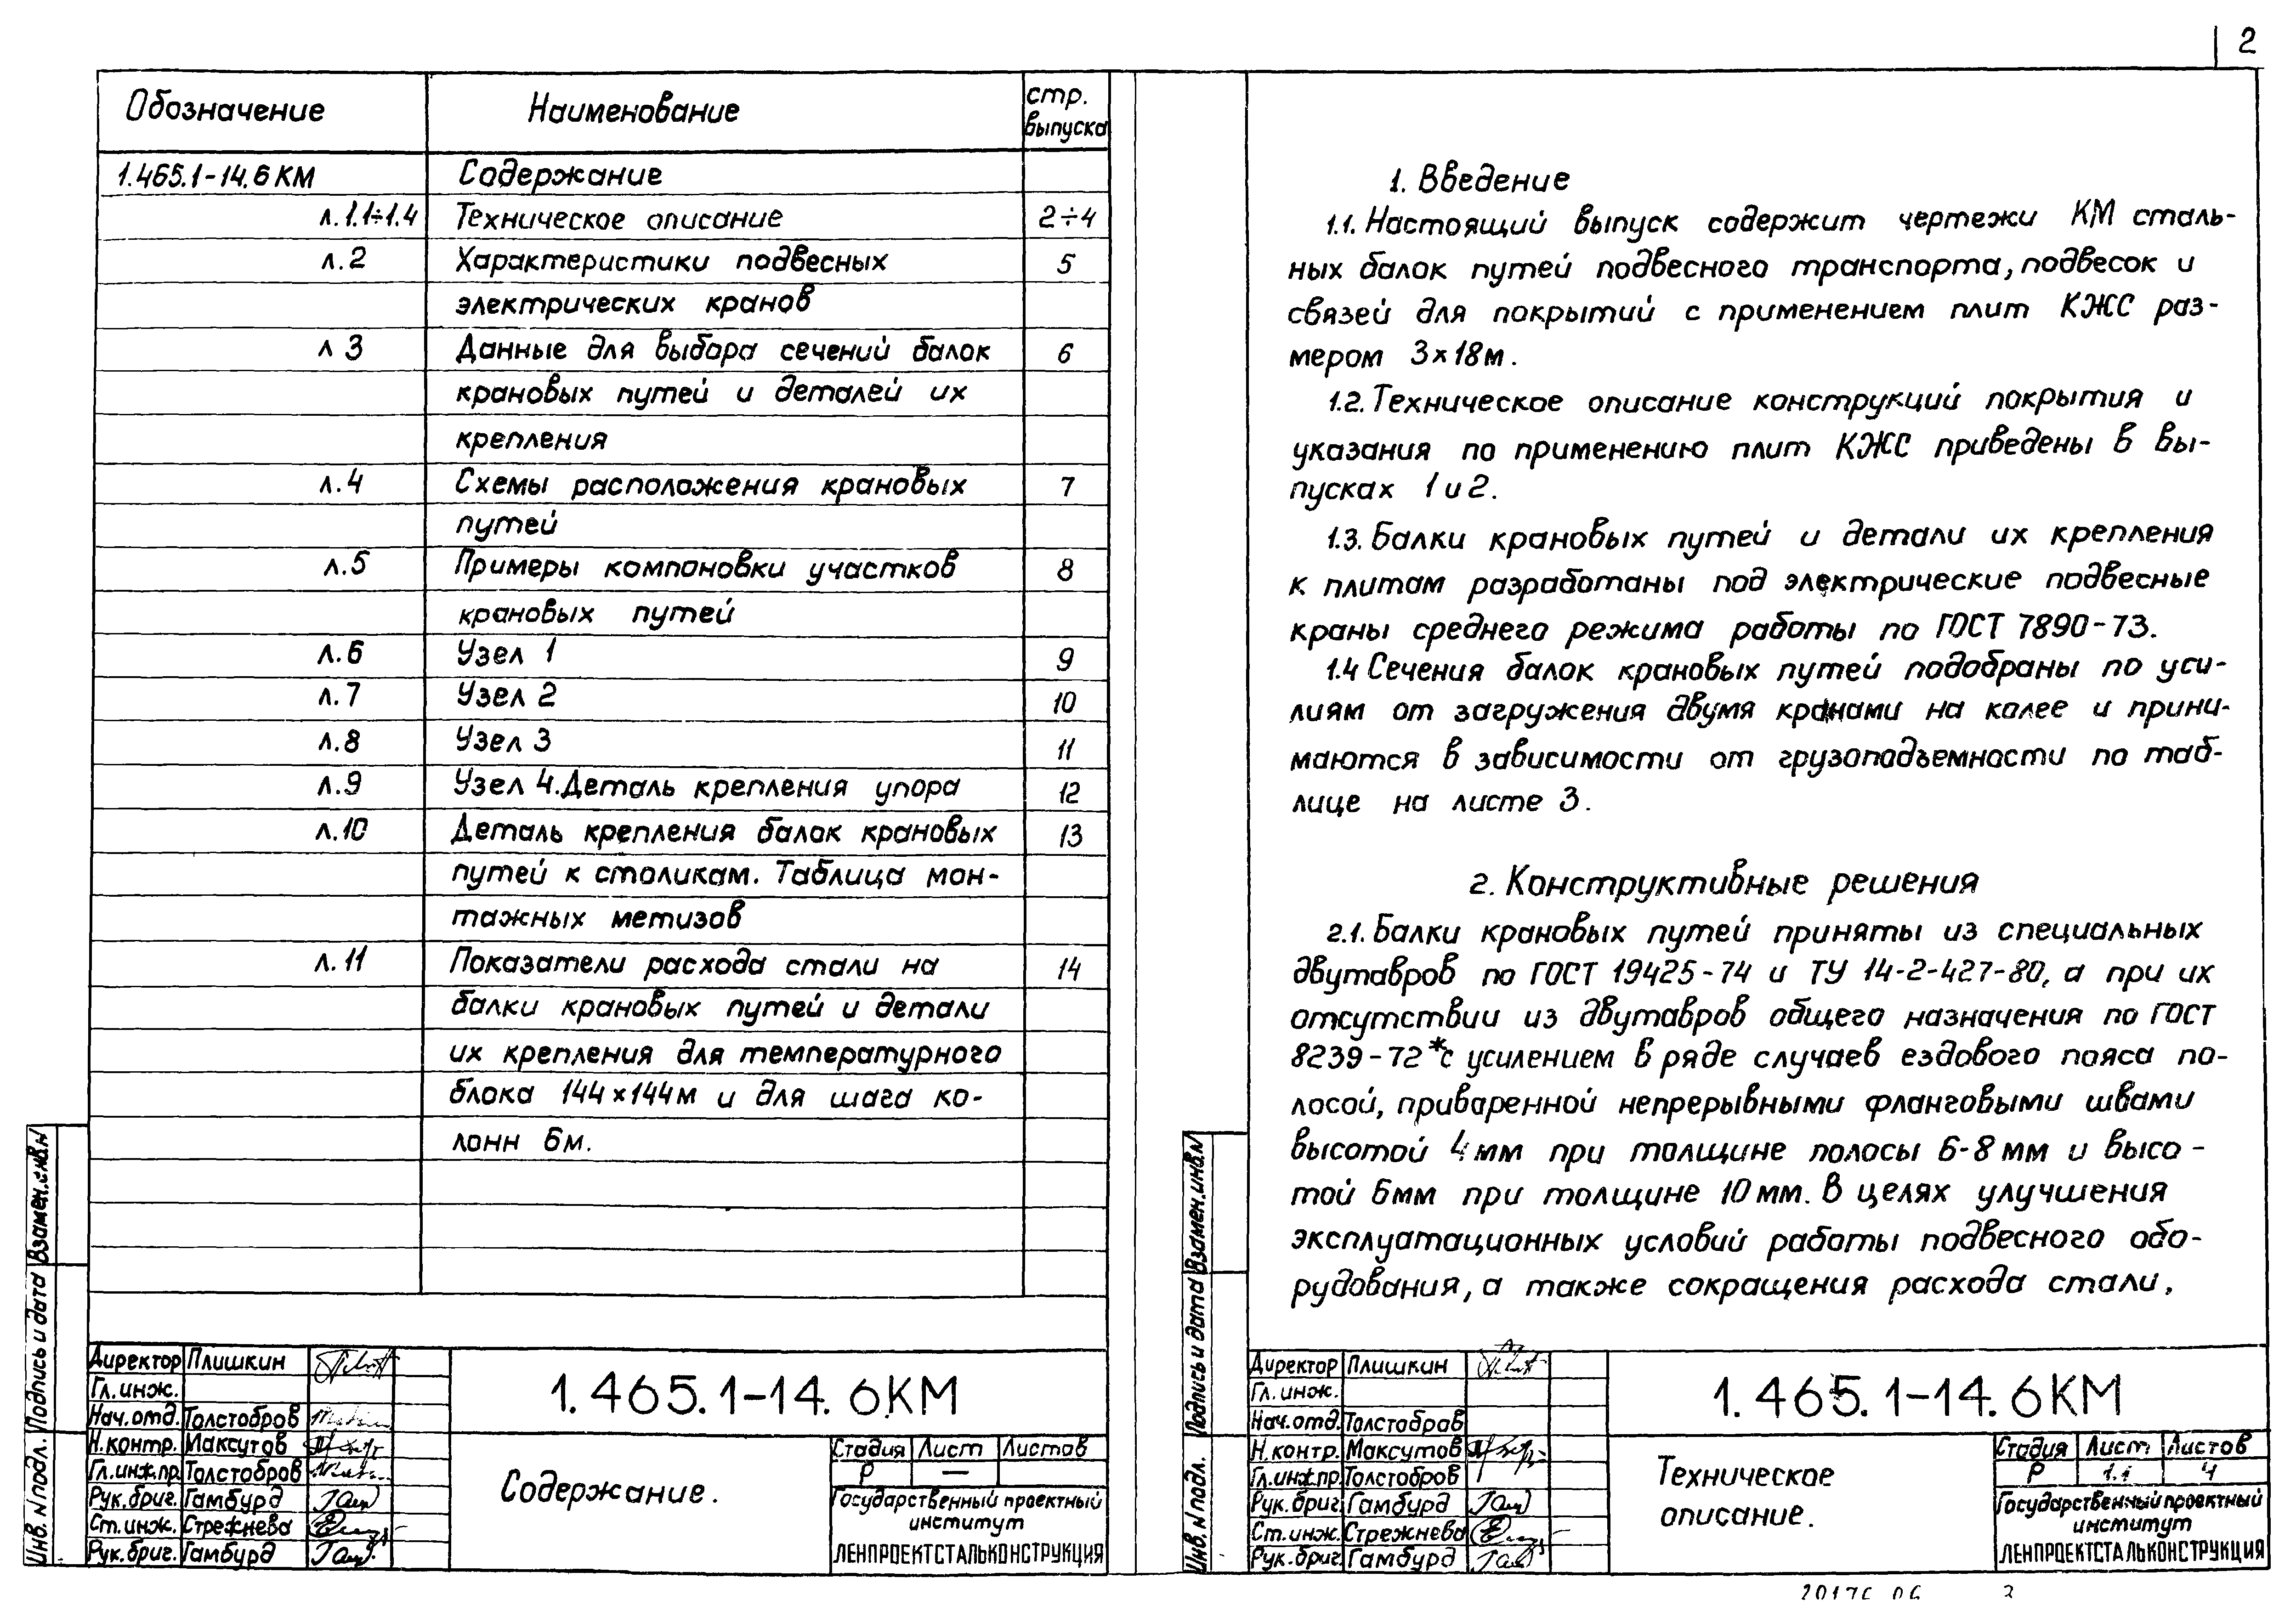 2
Обозначение Наименование стр. выпуска
1.465.1-14.6КМ Содержание
л.1.1÷1.4 Техническое описание 2÷4
л.2 Характеристики подвесных 5
электрических кранов
л 3 Данные для выбора сечений балок 6
крановых путей и деталей их
крепления
л.4 Схемы расположения крановых 7
путей
л.5 Примеры компановки участков 8
крановых путей
л.6 Узел 1 9
л.7 Узел 2 10
л.8 Узел 3 11
л.9 Узел 4. Деталь крепления упора 12
л.10 Деталь крепления балок крановых 13
путей к столикам. Таблица мон-
тажных метизов
л.11 Показатели расхода стали на 14
балки крановых путей и детали
их крепления для температурного
блока 144×144м и для шага ко-
лонн 6м.
Взамен.инв.№
Подпись и дата
Инв.№подл.
Директор Плишкин
Гл.инж.
Нач.отд. Толстобров
Н.контр. Максутов
Гл.инж.пр. Толстобров
Рук.бриг. Гамбурд
Ст.инж. Стрежнева
Рук.бриг. Гамбурд
1.465.1-14.6КМ
Содержание.
Стадия Лист Листов
Р —
Государственный проектный
институт
ЛЕНПРОЕКТСТАЛЬКОНСТРУКЦИЯ
1. Введение
1.1. Настоящий выпуск содержит чертежи КМ сталь-
ных балок путей подвесного транспорта, подвесок и
связей для покрытий с применением плит КЖС раз-
мером 3×18м.
1.2. Техническое описание конструкций покрытия и
указания по применению плит КЖС приведены в вы-
пусках 1 и 2.
1.3. Балки крановых путей и детали их крепления
к плитам разработаны под электрические подвесные
краны среднего режима работы по ГОСТ 7890-73.
1.4 Сечения балок крановых путей подобраны по уси-
лиям от загружения двумя кранами на колее и прини-
маются в зависимости от грузоподъемности по таб-
лице на листе 3.
2. Конструктивные решения
2.1. Балки крановых путей приняты из специальных
двутавров по ГОСТ 19425-74 и ТУ 14-2-427-80, а при их
отсутствии из двутавров общего назначения по ГОСТ
8239-72* с усилением в ряде случаев ездового пояса по-
лосой, приваренной непрерывными фланговыми швами
высотой 4мм при толщине полосы 6-8мм и высо-
той 6мм при толщине 10мм. В целях улучшения
эксплуатационных условий работы подвесного обо-
рудования, а также сокращения расхода стали,
Взамен.инв.№
Подпись и дата
Инв.№подл.
Директор Плишкин
Гл.инж.
Нач.отд. Толстобров
Н.контр. Максутов
Гл.инж.пр. Толстобров
Рук.бриг. Гамбурд
Ст.инж. Стрежнева
Рук.бриг. Гамбурд
1.465.1-14.6КМ
Техническое
описание.
Стадия Лист Листов
Р 1.1 4
Государственный проектный
институт
ЛЕНПРОЕКТСТАЛЬКОНСТРУКЦИЯ